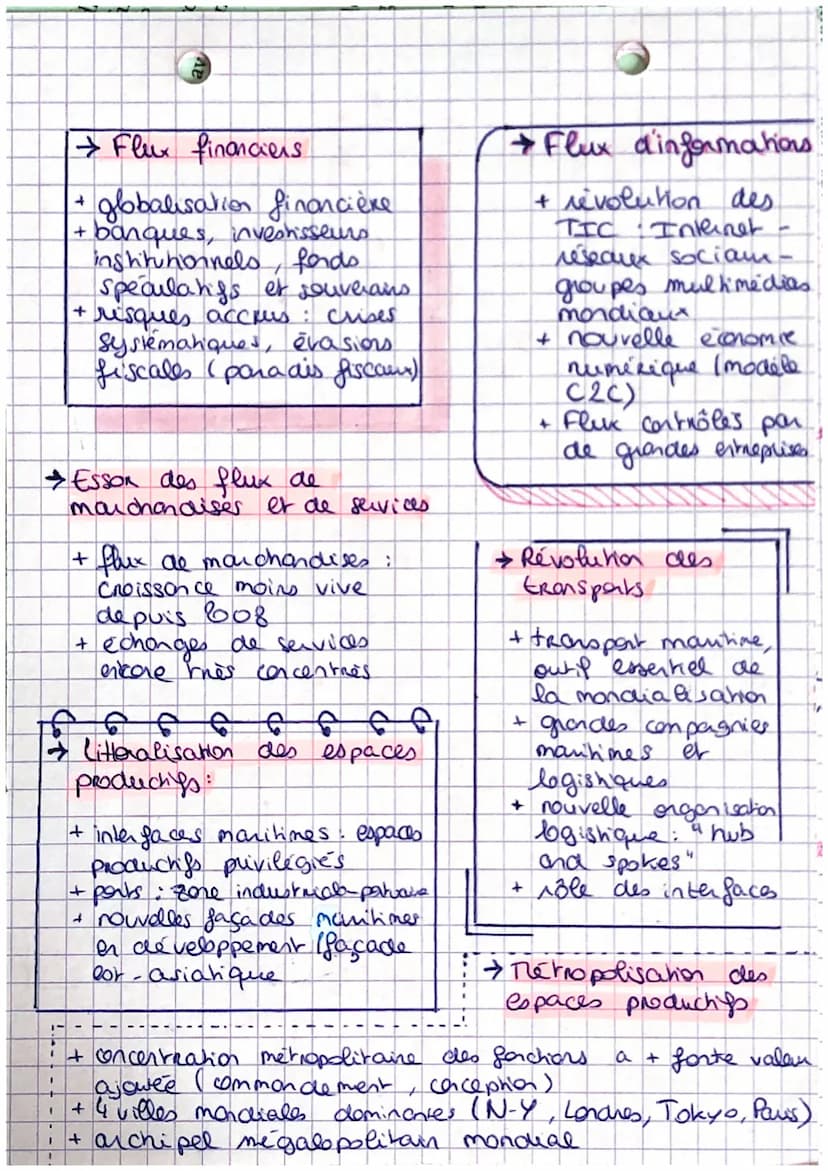 → Flux financiers
+ globalisation financière
+ banques, investisseurs
institutionnels, fonds
spéculatifs et souverains
+ risques accrus : crises
systématiques, évasions
fiscales (paradis fiscaux)
→ Flux d'informations
+ révolution des
TIC : Internet -
réseaux sociaux -
groupes multimédias
mondiaux
+ nouvelle économie
numérique (modèle
C2C)
+ Flux contrôlés par
de grandes entreprises
→ Essor des flux de
marchandises et de services
+ flux de marchandises :
croissance moins vive
depuis 2008
+ échanges de services
encore très concentrés
→ Révolution des
transports
+ transport maritime,
outil essentiel de
la mondialisation
+ grandes compagnies
maritimes et
logistiques
+ nouvelle organisation
logistique : "hub
and spokes"
+ rôle des interfaces
→ Littoralisation des espaces
productifs :
+ interfaces maritimes : espaces
productifs privilégiés
+ ports : zone industrialo-portuaire
+ nouvelles façades maritimes
en développement (façade
est-asiatique
→ Métropolisation des
espaces productifs
+ concentration métropolitaine des fonctions a + forte valeur
ajoutée (commandement, conception)
+ 4 villes mondiales dominantes (N-Y, Londres, Tokyo, Paris)
+ archipel mégalopolitain mondial